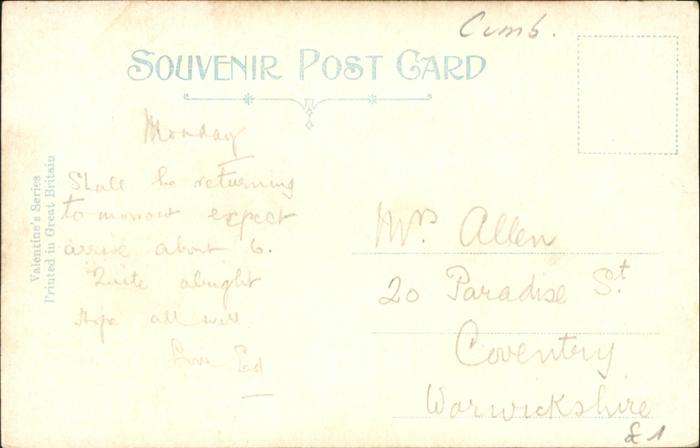 Cumb.
SOUVENIR POST CARD
Monday
Shall be returning
to-morrow expect
arrive about 6.
Quite alright
Hope all well
Love Ed
Valentine's Series
Printed in Great Britain
Mrs Allen
20 Paradise St
Coventry
Warwickshire
£1